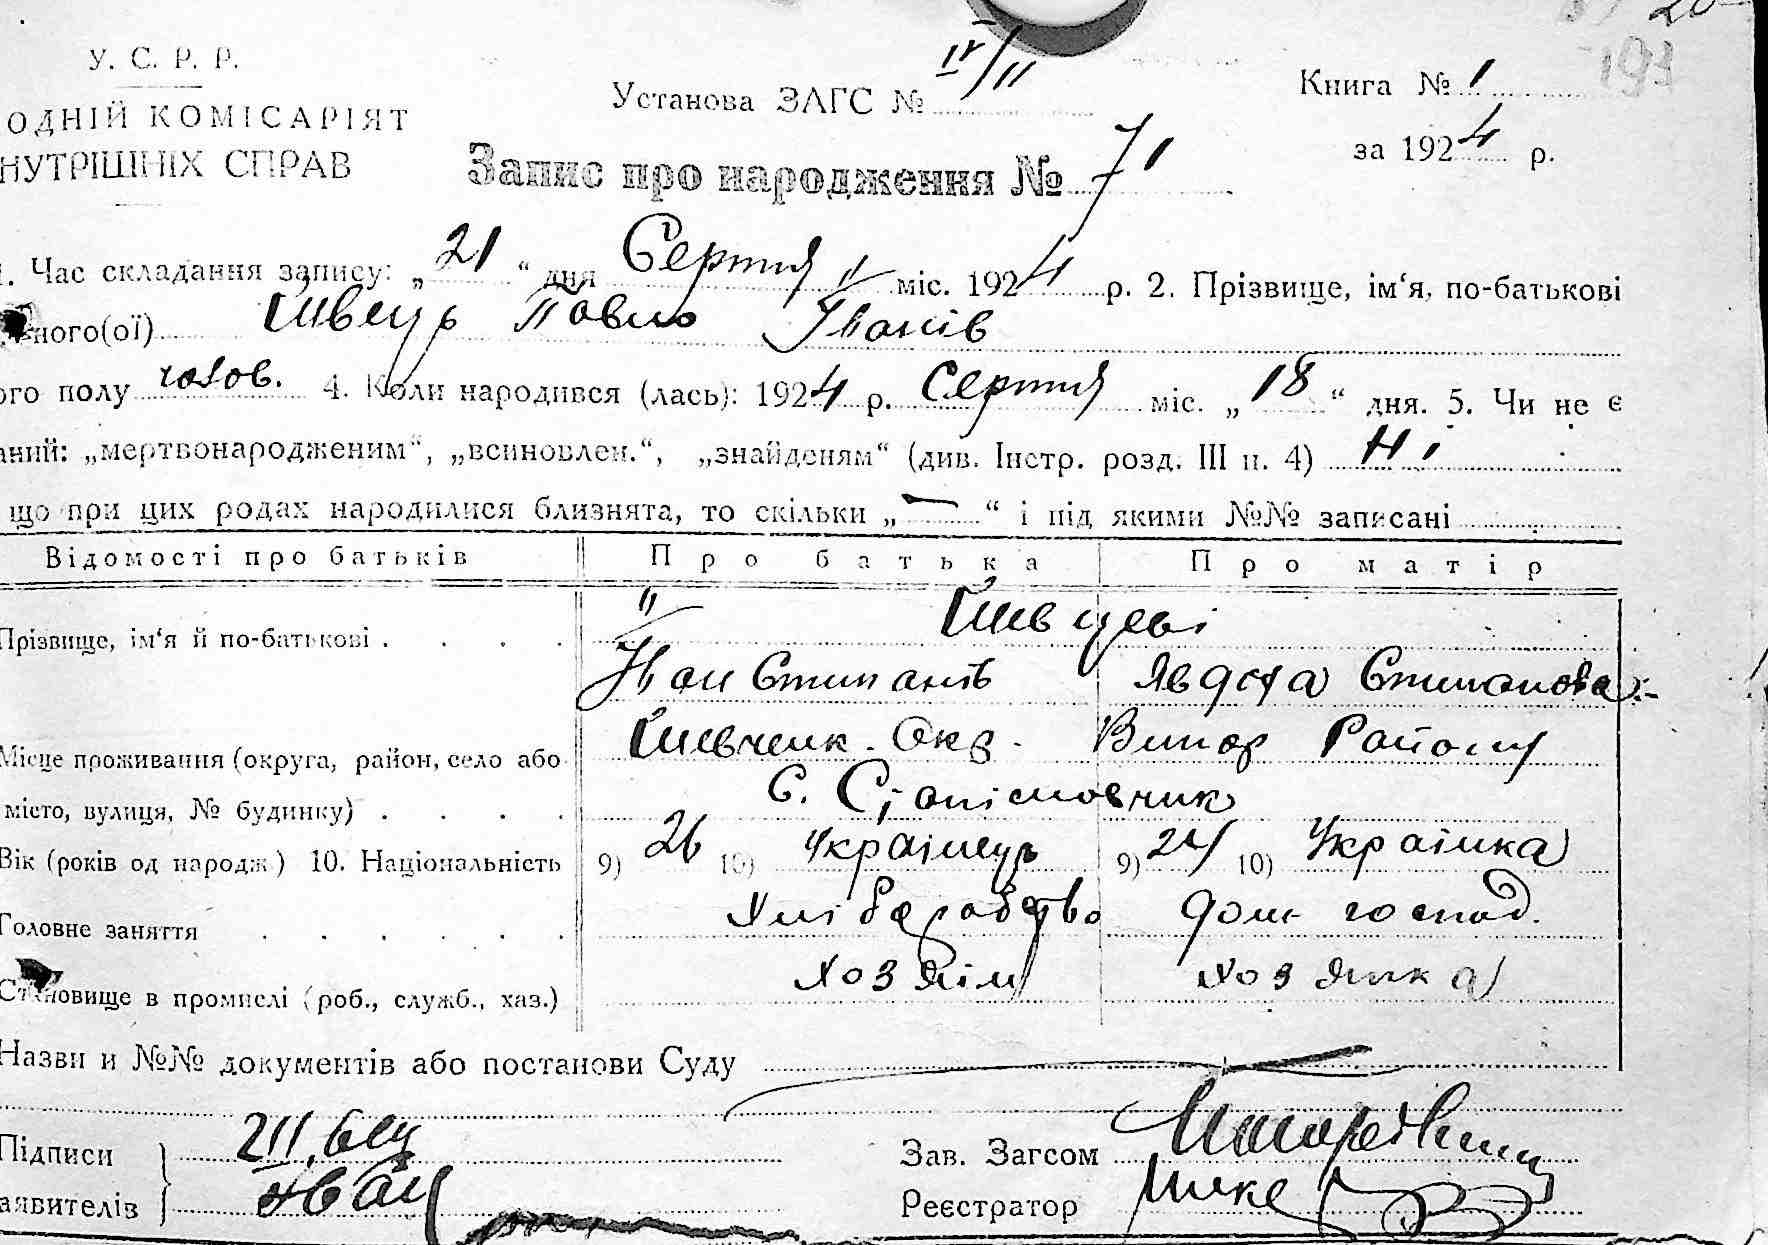 У. С. Р. Р.
ОДНІЙ КОМІСАРІЯТ
НУТРІШНІХ СПРАВ
Установа ЗАГС № IV/II
Книга № 1
за 1924 р.
193
Запис про народження № 71
1. Час складання запису: „21“ дня Серпня міс. 1924 р. 2. Прізвище, ім‘я, по-батькові
ного(ої) Швець Павло Іванів
ого полу чолов. 4. Коли народився (лась): 1924 р. Серпня міс. „18“ дня. 5. Чи не є
аний: „мертвонародженим“, „всиновлен.“, „знайденям“ (див. Інстр. розд. III п. 4) Ні
що при цих родах народилися близнята, то скільки „—“ і під якими №№ записані
Відомості про батьків Про батька Про матір
Прізвище, ім‘я й по-батькові . . . . Швецеві
Іван Степанів Явдоха Степанова
Місце проживання (округа, район, село або Шевченк. Окр. Вільш Району
місто, вулиця, № будинку) . . . . С.
Вік (років од народж.) 10. Національність 9) 26 10) Українець 9) 24 10) Українка
Головне заняття . . . . . . Хліборобство дом. господ.
Становище в промислі (роб., служб., хаз.) Хозяїн Хозяйка
Назви и №№ документів або постанови Суду
Підписи Швец
аявителів Іван
Зав. Загсом
Реєстратор